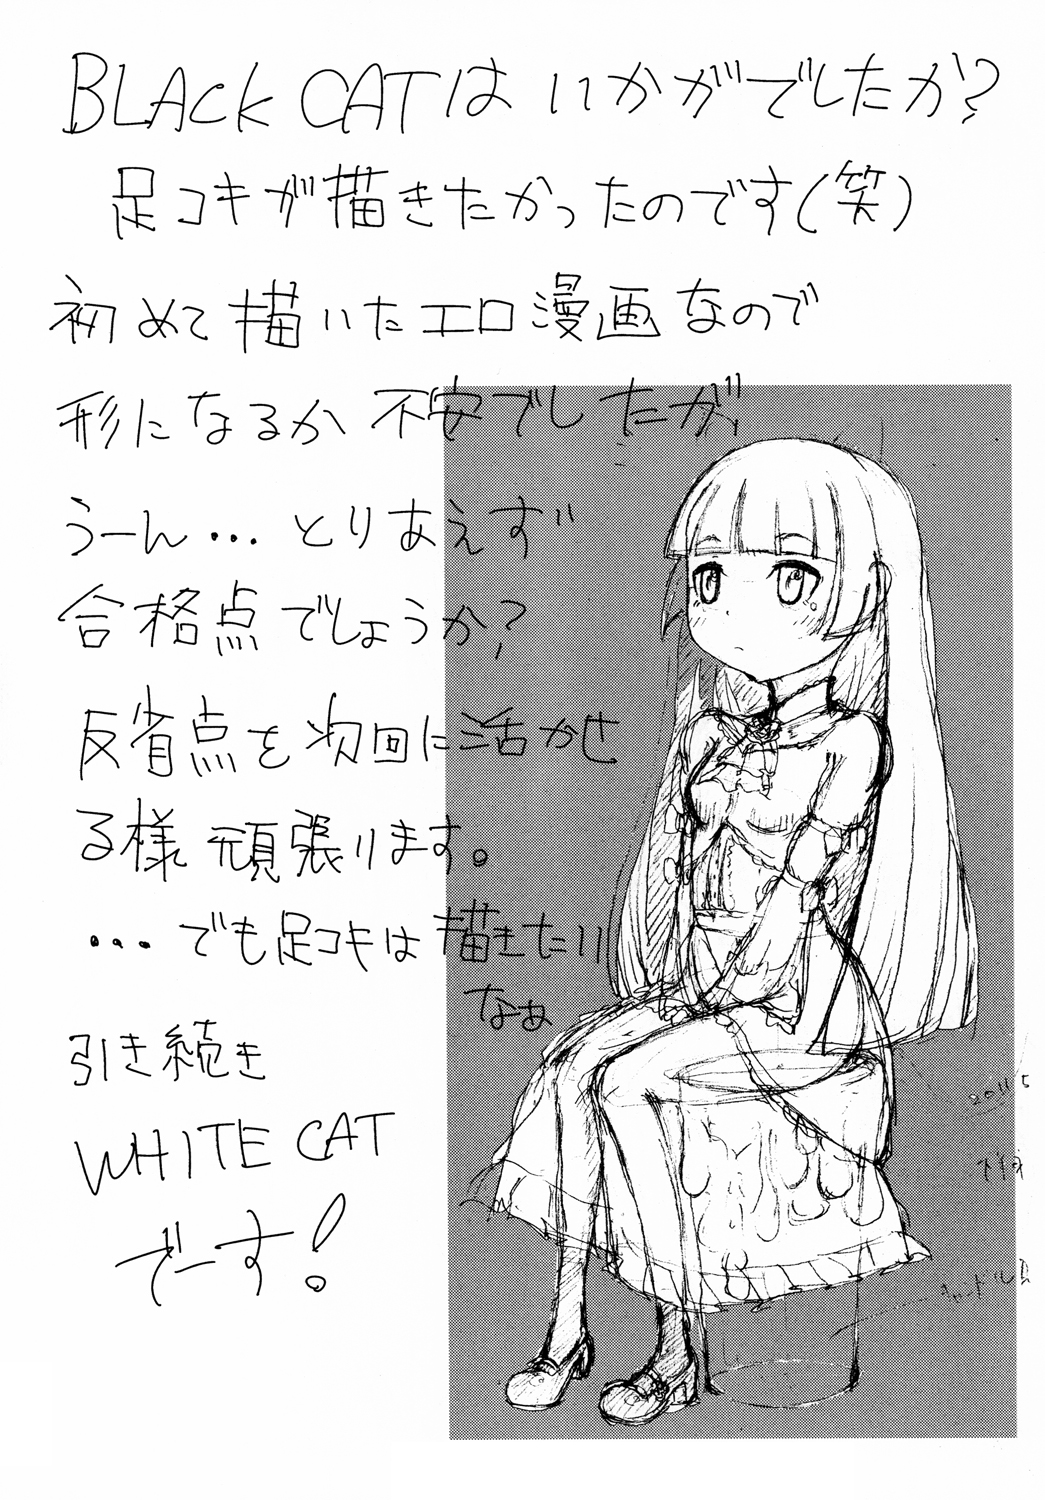 BLACK CATは いかがでしたか?
足コキが描きたかったのです(笑)
初めて描いたエロ漫画なので
形になるか不安でしたが、
うーん… とりあえず
合格点でしょうか?
反省点を次回に活かせ
る様 頑張ります。
…でも足コキは描きたい
なぁ
引き続き
WHITE CAT
でーす!
2011